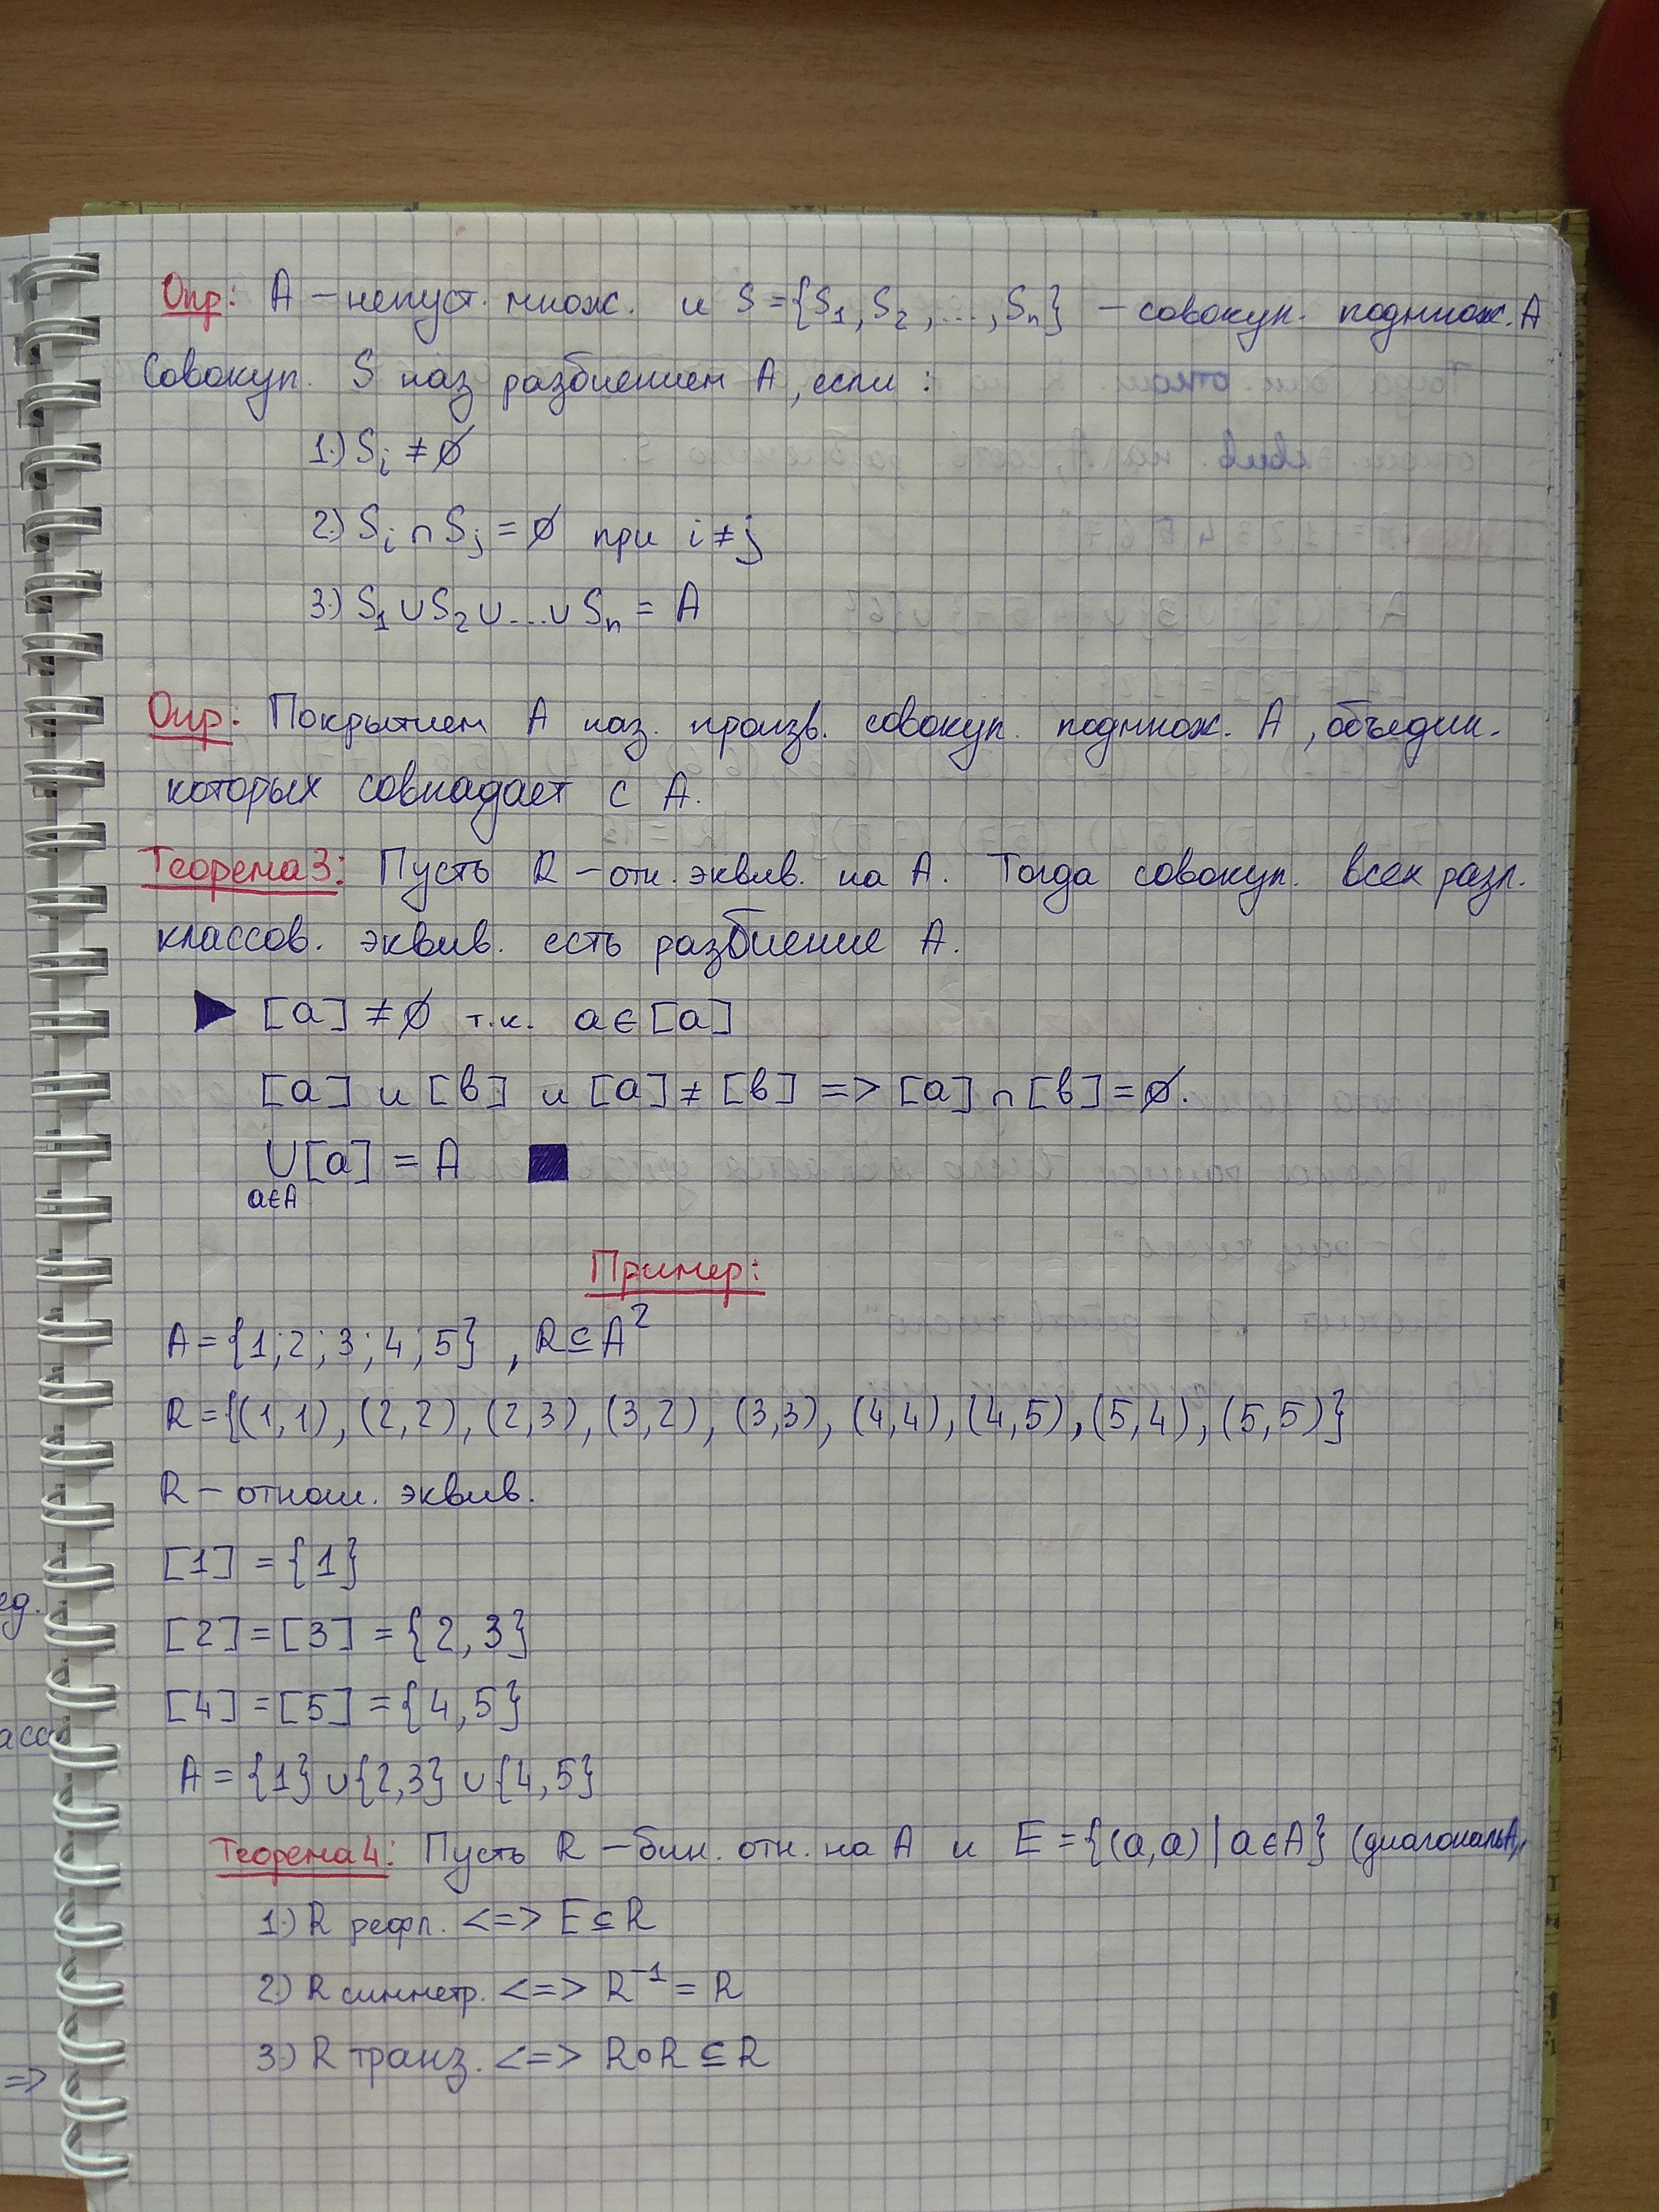 Опр: A – непуст. множ. и S = {S₁, S₂, ..., Sₙ} – совокуп. подмнож. A
Совокуп. S наз разбиением A, если:
1.) Sᵢ ≠ ∅
2.) Sᵢ ∩ Sⱼ = ∅ при i ≠ j
3.) S₁ ∪ S₂ ∪ ... ∪ Sₙ = A
Опр: Покрытием A наз. произв. совокуп. подмнож. A, объедин.
которых совпадает с A.
Теорема 3: Пусть R – отн. эквив. на A. Тогда совокуп. всех разл.
классов. эквив. есть разбиение A.
▶ [a] ≠ ∅ т.к. a ∈ [a]
[a] и [в] и [a] ≠ [в] => [a] ∩ [в] = ∅.
∪[a] = A ■
a∈A
Пример:
A = {1; 2; 3; 4; 5}, R ⊆ A²
R = {(1,1), (2,2), (2,3), (3,2), (3,3), (4,4), (4,5), (5,4), (5,5)}
R – отнош. эквив.
[1] = {1}
[2] = [3] = {2, 3}
[4] = [5] = {4, 5}
A = {1} ∪ {2,3} ∪ {4, 5}
Теорема 4: Пусть R – бин. отн. на A и E = {(a,a) | a ∈ A} (диагональ A)
1.) R рефл. <=> E ⊆ R
2.) R симметр. <=> R⁻¹ = R
3.) R транз. <=> R∘R ⊆ R
ед.
=>